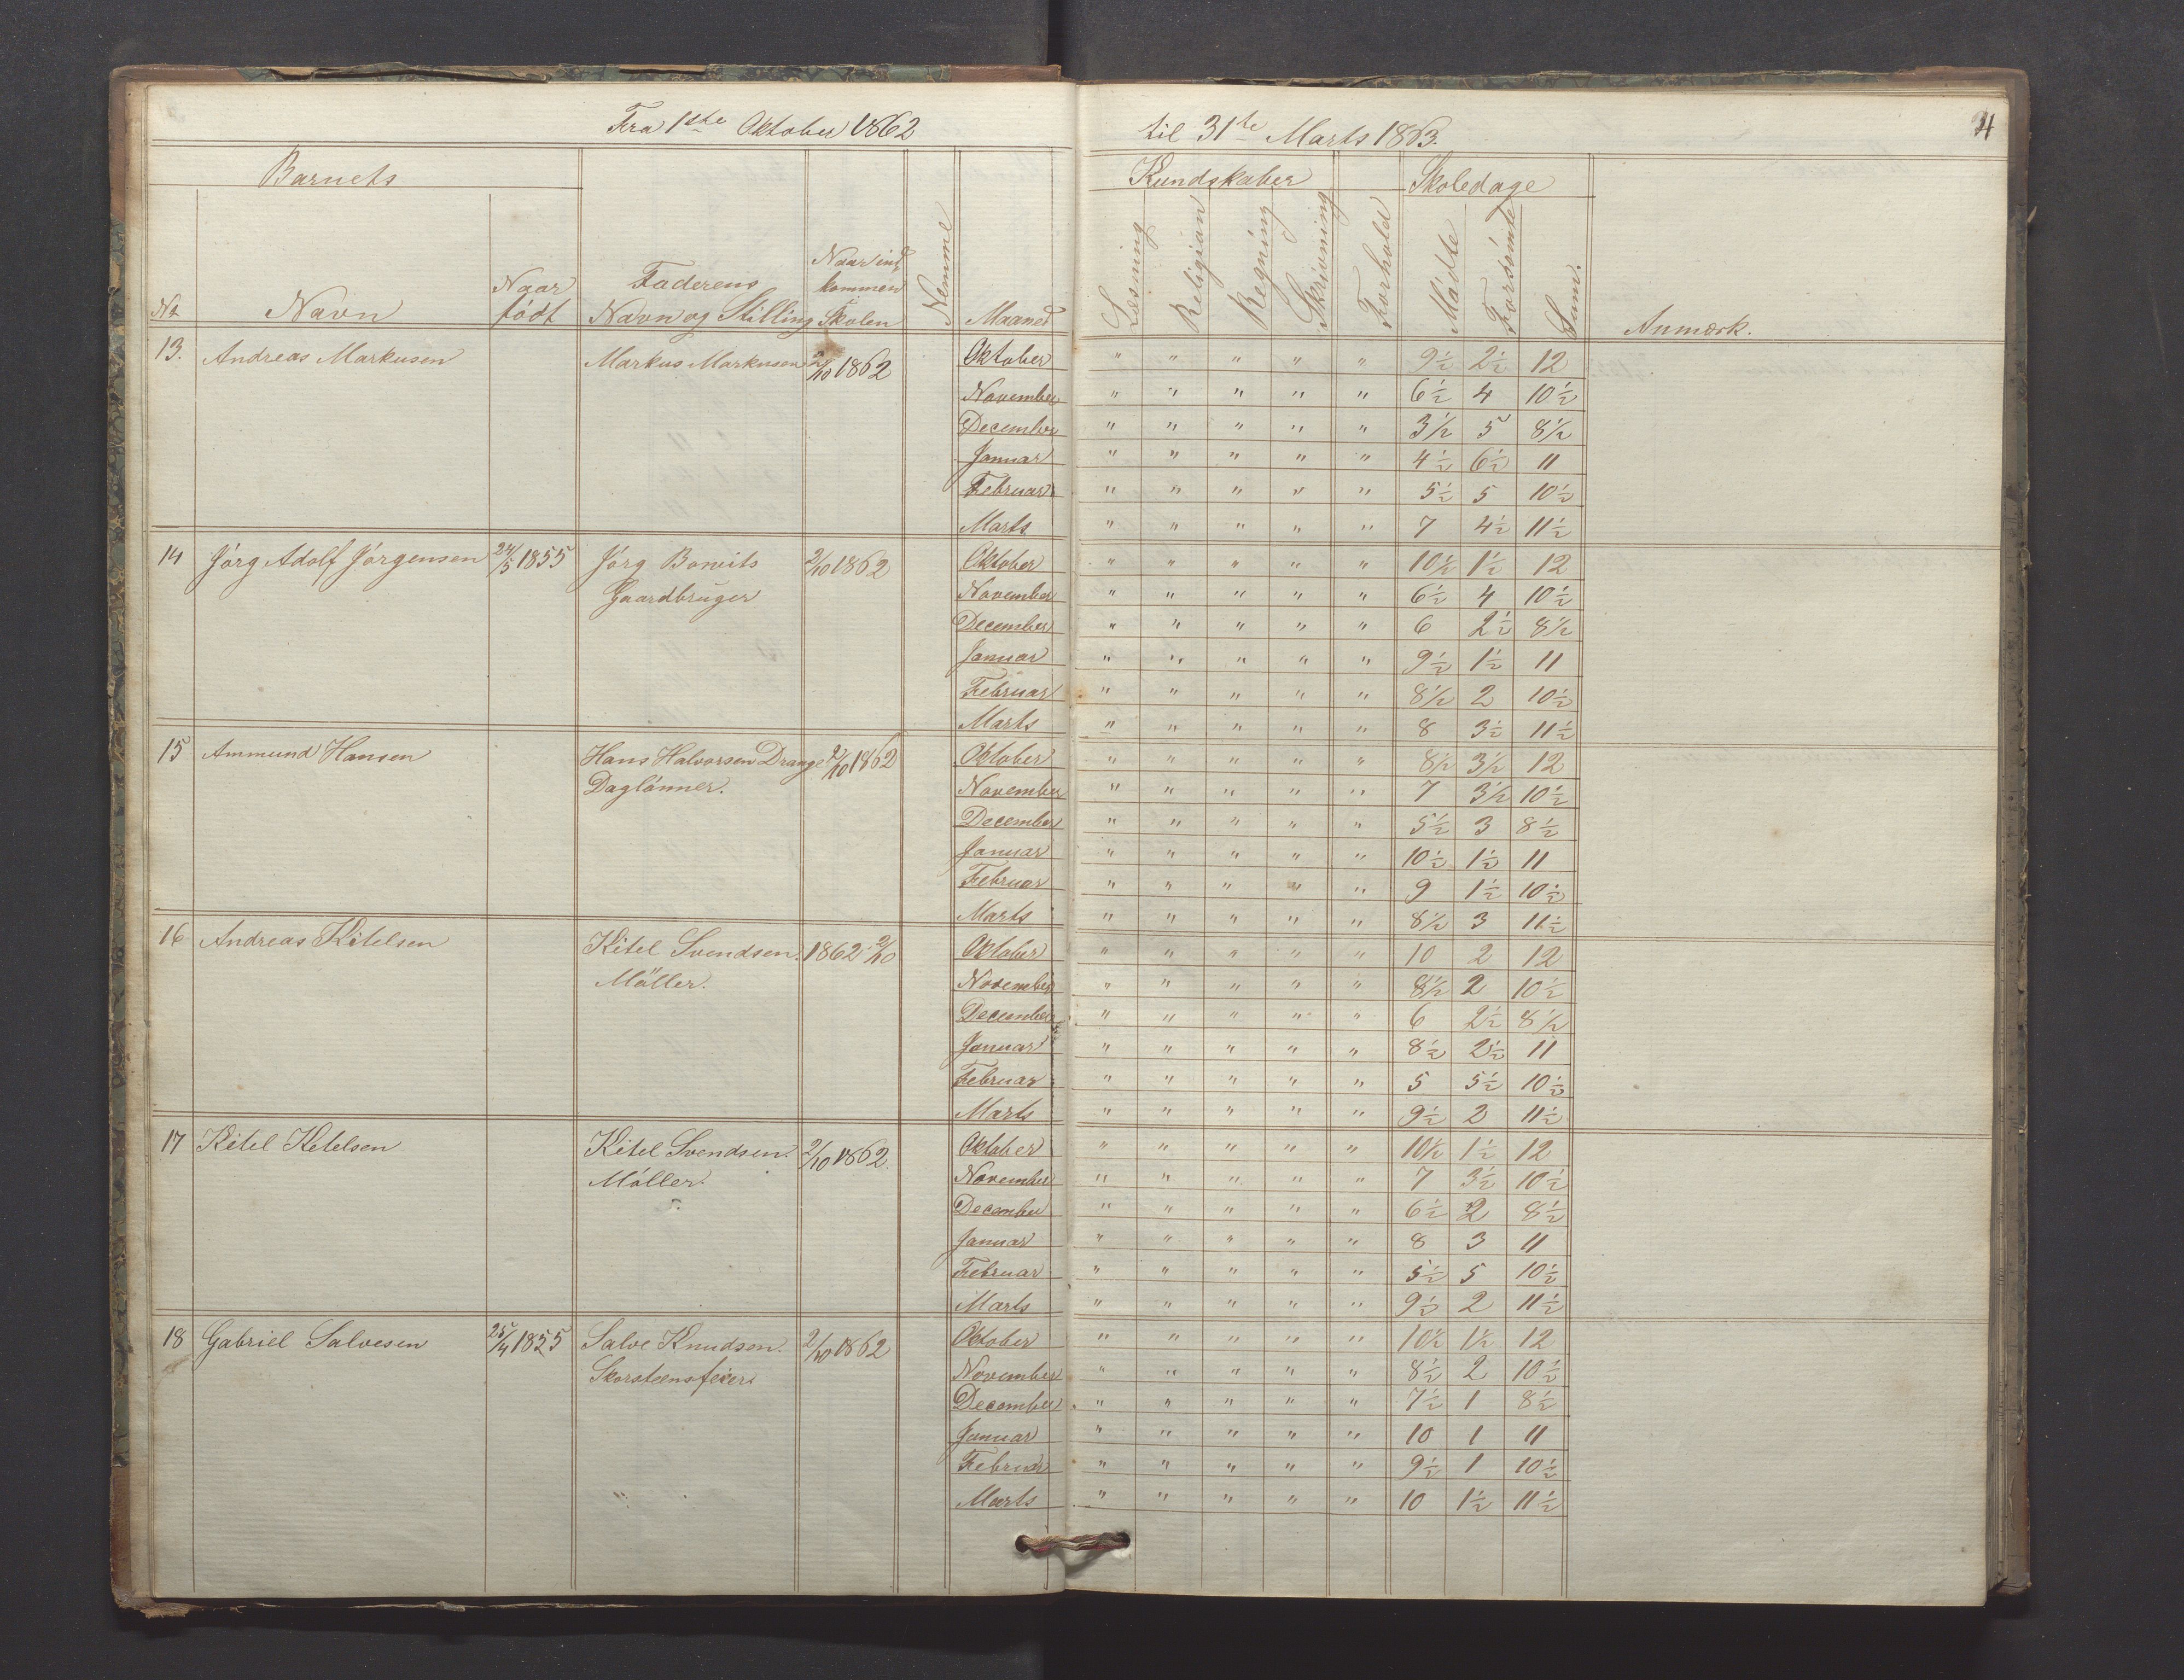 Fra 1ste Oktober 1862 til 31te Marts 1863. 4
Barnets Kundskaber Skoledage
No Navn Naar födt Faderens Navn og Stilling Naar ind kommen Skolen Nemme Maaned Læsning Religion Regning Skrivning Forhold Mödte Forsömte Sum. Anmærk.
13. Andreas Markusen Markus Markusen 2/10 1862 Oktober " " " " " 9½ 2½ 12
November " " " " " 6½ 4 10½
December " " " " " 3½ 5 8½
Januar " " " " " 4½ 6½ 11
Februar " " " " " 5½ 5 10½
Marts " " " " " 7 4½ 11½
14 Jörg Adolf Jörgensen 24/5 1855 Jörg Bonvits 2/10 1862 Oktober " " " " " 10½ 1½ 12
Gaardbruger November " " " " " 6½ 4 10½
December " " " " " 6 2½ 8½
Januar " " " " " 9½ 1½ 11
Februar " " " " " 8½ 2 10½
Marts " " " " " 8 3½ 11½
15 Ammund Hansen Hans Halvorsen Drange 2/10 1862 Oktober " " " " " 8½ 3½ 12
Daglönner. November " " " " " 7 3½ 10½
December " " " " " 5½ 3 8½
Januar " " " " " 10½ 1½ 11
Februar " " " " " 9 1½ 10½
Marts " " " " " 8½ 3 11½
16 Andreas Kitelsen Kitel Svendsen. 1862 2/10 Oktober " " " " " 10 2 12
Möller. November " " " " " 8½ 2 10½
December " " " " " 6 2½ 8½
Januar " " " " " 8½ 2½ 11
Februar " " " " " 5 5½ 10½
Marts " " " " " 9½ 2 11½
17 Kitel Ketelsen Kitel Svendsen. 2/10 1862. Oktober " " " " " 10½ 1½ 12
Möller. November " " " " " 7 3½ 10½
December " " " " " 6½ 2 8½
Januar " " " " " 8 3 11
Februar " " " " " 5½ 5 10½
Marts " " " " " 9½ 2 11½
18 Gabriel Salvesen 25/4 1855 Salve Knudsen. 2/10 1862 Oktober " " " " " 10½ 1½ 12
Skorsteensfeier November " " " " " 8½ 2 10½
December " " " " " 7½ 1 8½
Januar " " " " " 10 1 11
Februar " " " " " 9½ 1 10½
Marts " " " " " 10 1½ 11½